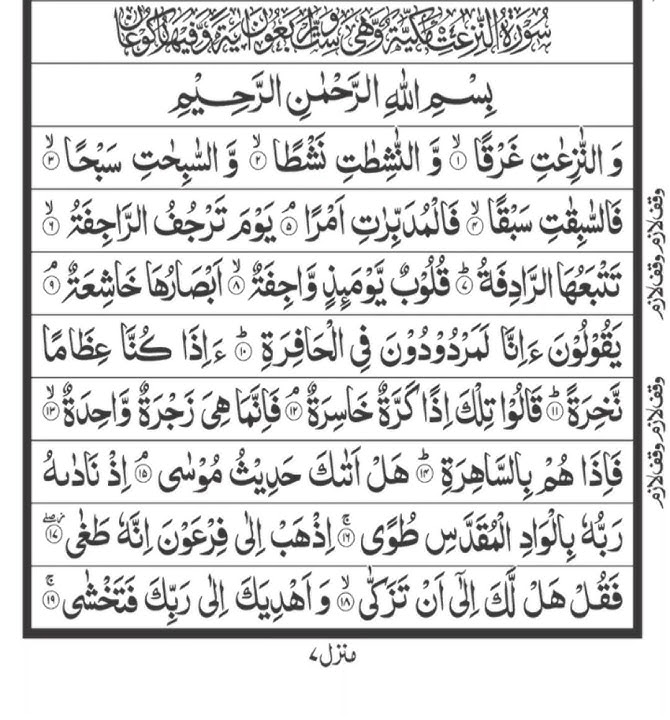 سُوْرَةُ النّٰزِعٰتِ مَكِّيَّةٌ وَّهِيَ سِتٌّ وَّاَرْبَعُوْنَ اٰيَةً وَّفِيْهَا رُكُوْعَانِ
بِسْمِ اللّٰهِ الرَّحْمٰنِ الرَّحِيْمِ
وَ النّٰزِعٰتِ غَرْقًا ۙ﴿۱﴾ وَّ النّٰشِطٰتِ نَشْطًا ۙ﴿۲﴾ وَّ السّٰبِحٰتِ سَبْحًا ۙ﴿۳﴾
فَالسّٰبِقٰتِ سَبْقًا ۙ﴿۴﴾ فَالْمُدَبِّرٰتِ اَمْرًا ۘ﴿۵﴾ يَوْمَ تَرْجُفُ الرَّاجِفَةُ ۙ﴿۶﴾
تَتْبَعُهَا الرَّادِفَةُ ؕ﴿۷﴾ قُلُوْبٌ يَّوْمَئِذٍ وَّاجِفَةٌ ۙ﴿۸﴾ اَبْصَارُهَا خَاشِعَةٌ ۘ﴿۹﴾
يَقُوْلُوْنَ ءَاِنَّا لَمَرْدُوْدُوْنَ فِي الْحَافِرَةِ ؕ﴿۱۰﴾ ءَاِذَا كُنَّا عِظَامًا
نَّخِرَةً ؕ﴿۱۱﴾ قَالُوْا تِلْكَ اِذًا كَرَّةٌ خَاسِرَةٌ ۘ﴿۱۲﴾ فَاِنَّمَا هِيَ زَجْرَةٌ وَّاحِدَةٌ ۙ﴿۱۳﴾
فَاِذَا هُمْ بِالسَّاهِرَةِ ؕ﴿۱۴﴾ هَلْ اَتٰىكَ حَدِيْثُ مُوْسٰى ۘ﴿۱۵﴾ اِذْ نَادٰىهُ
رَبُّهٗ بِالْوَادِ الْمُقَدَّسِ طُوًى ۚ﴿۱۶﴾ اِذْهَبْ اِلٰى فِرْعَوْنَ اِنَّهٗ طَغٰى ﴿۱۷﴾
فَقُلْ هَلْ لَّكَ اِلٰٓى اَنْ تَزَكّٰى ۙ﴿۱۸﴾ وَ اَهْدِيَكَ اِلٰى رَبِّكَ فَتَخْشٰى ۚ﴿۱۹﴾
وقف لازم
وقف لازم
وقف لازم
وقف لازم
منزل ۷